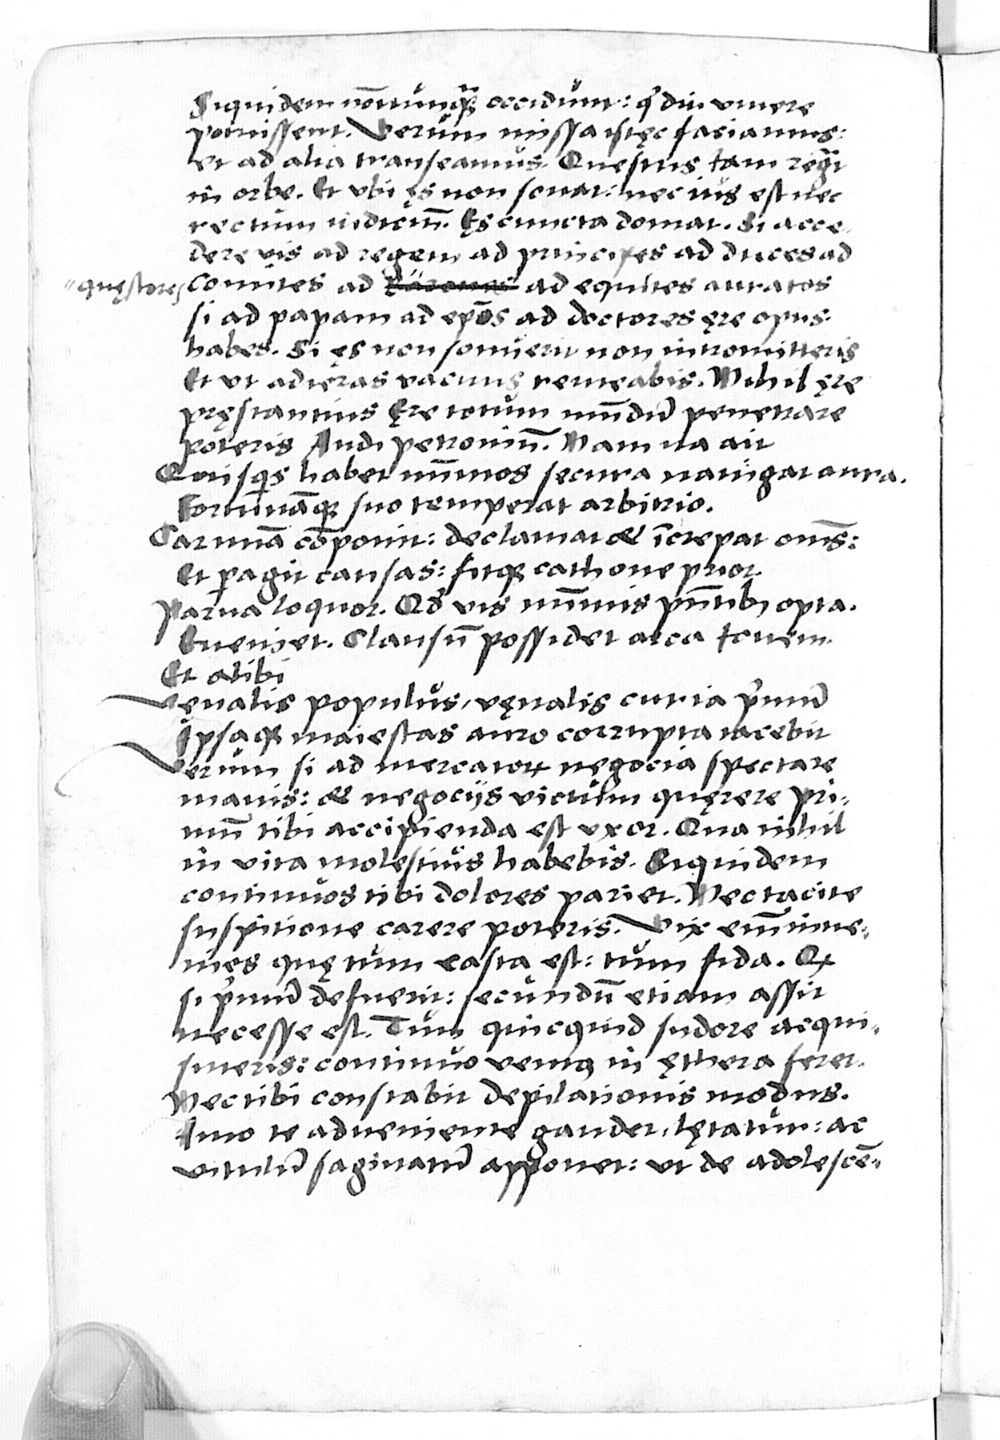 Siquidem nōnūnq̄ȝ occidunt: q̄ diu viuere
potuissent. Verum missa istęc faciamus:
et ad alia transeamus. Questus tam regīt
in orbe. Et vbi ęs non sonat: nec ius est nec
rectum iudiciū. Ęs cuncta domat. Si acce-
dere vis ad regem ad principes ad duces ad
"quęstores
comites ad ad equites auratos
si ad papam ad ep̄os ad doctores ęre opus
habes. Si ęs non sonuerit non intromitteris
Et vt adieras vacuus remeabis. Nihil ęre
pręstantius Ęre totum mūdū penetrare
poteris Audi petroniū. Nam ita ait
Quisq̄s habet nūmos secura nauigat aura.
Fortunāq̄ȝ suo temperat arbitrio.
Carmīa cōponit: declamat & īcrepat om̄s:
Et p̲agit causas: fitqȝ cathone prior
Parua loquor. Qd̄ vis nūmis pn̄tibȝ opta.
Eueniet. Clausū possidet arca Iouem.
Et alibi
Venalis populus, vęnalis curia p̄mū
Ipsaqȝ maiestas auro corrupta iacebit
Verum si ad mercatoꝝ negocia spectare
mauis: & negocijs victum quęrere pri-
mū tibi accipienda est vxor. Qua nihil
in vita molestius habebis. Siquidem
continuos tibi dolores pariet. Nec tacite
suspitione carere poteris. Vix em̄ inue-
nies quę tum casta est: tum fida. Qꝫ
si p̄mū defuerit: secundū etiam assit
necesse est. Tum quicquid sudore acqui-
siueris: continuo ventꝰ in ęthera feret.
Nec tibi constabit depilationis modus.
Imo te adueniente gaudet, lętatur: ac
vitulū saginatū apponet: vt de adolescē-